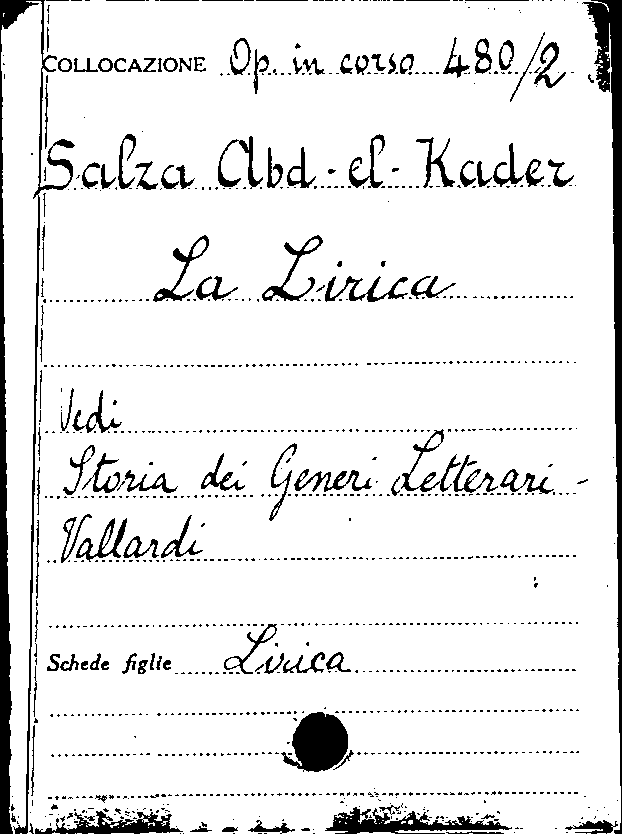 COLLOCAZIONE Op. in corso 480/2
Salza Abd-el-Kader
La Lirica
Vedi
Storia dei Generi Letterari -
Vallardi
Schede figlie Lirica